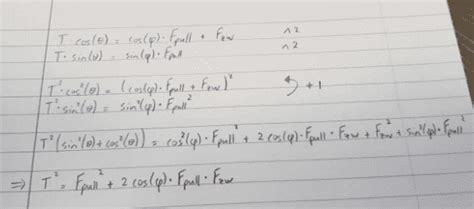 T cos(θ) = cos(φ)·F_pull + F_zw ^2
T·sin(θ) = sin(φ)·F_pull ^2
T²·cos²(θ) = (cos(φ)·F_pull + F_zw)²
T²·sin²(θ) = sin²(φ)·F_pull² +1
T²(sin²(θ)+cos²(θ)) = cos²(φ)·F_pull² + 2cos(φ)·F_pull·F_zw + F_zw² + sin²(φ)·F_pull²
⇒ T² = F_pull² + 2cos(φ)·F_pull·F_zw